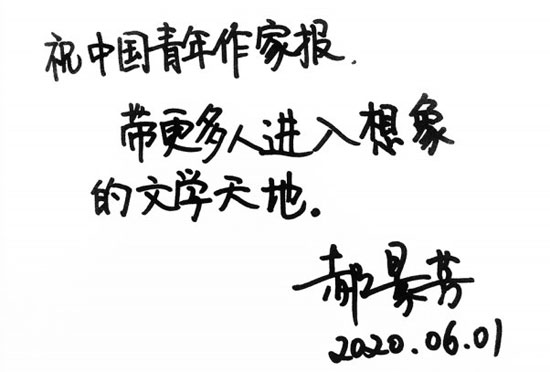 祝中国青年作家报.
带更多人进入想象
的文学天地。
郝景芳
2020.06.01